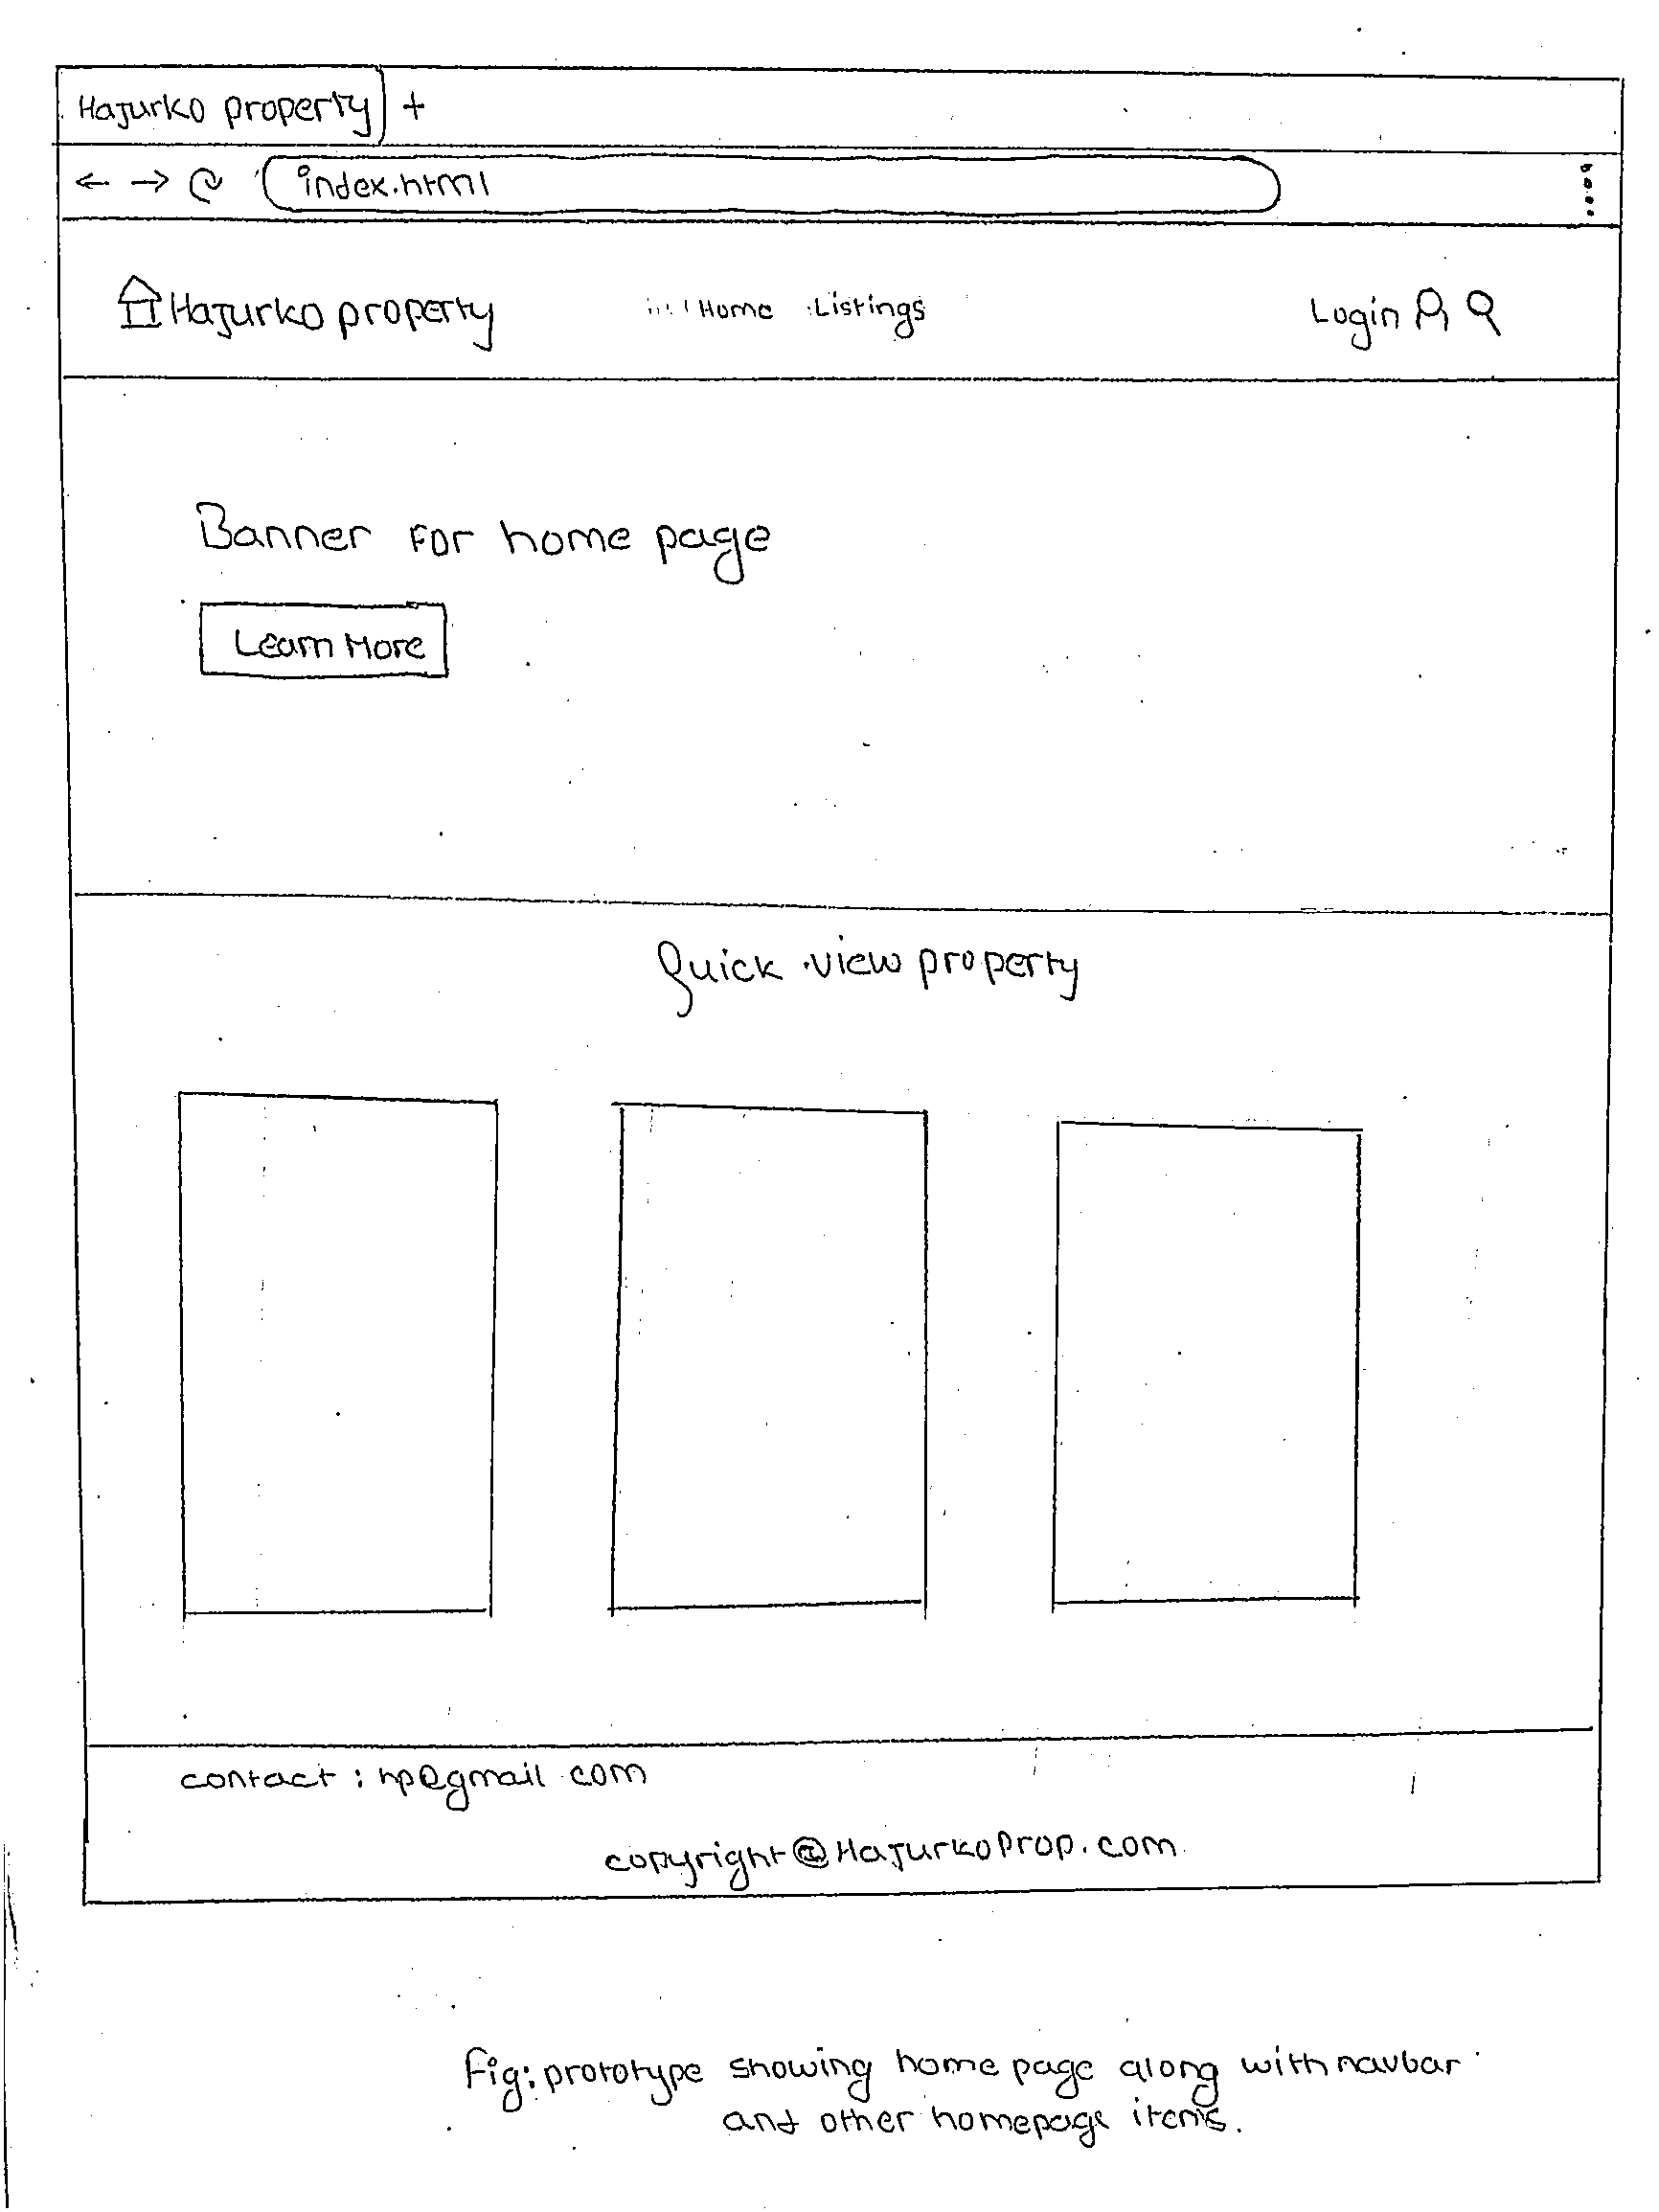 Hajurko property +
index.html
Hajurko property Home Listings Login
Banner For home page
Learn More
Quick view property
contact : hp@gmail.com
copyright@HajurkoProp.com
Fig: prototype showing home page along with navbar
and other homepage items.